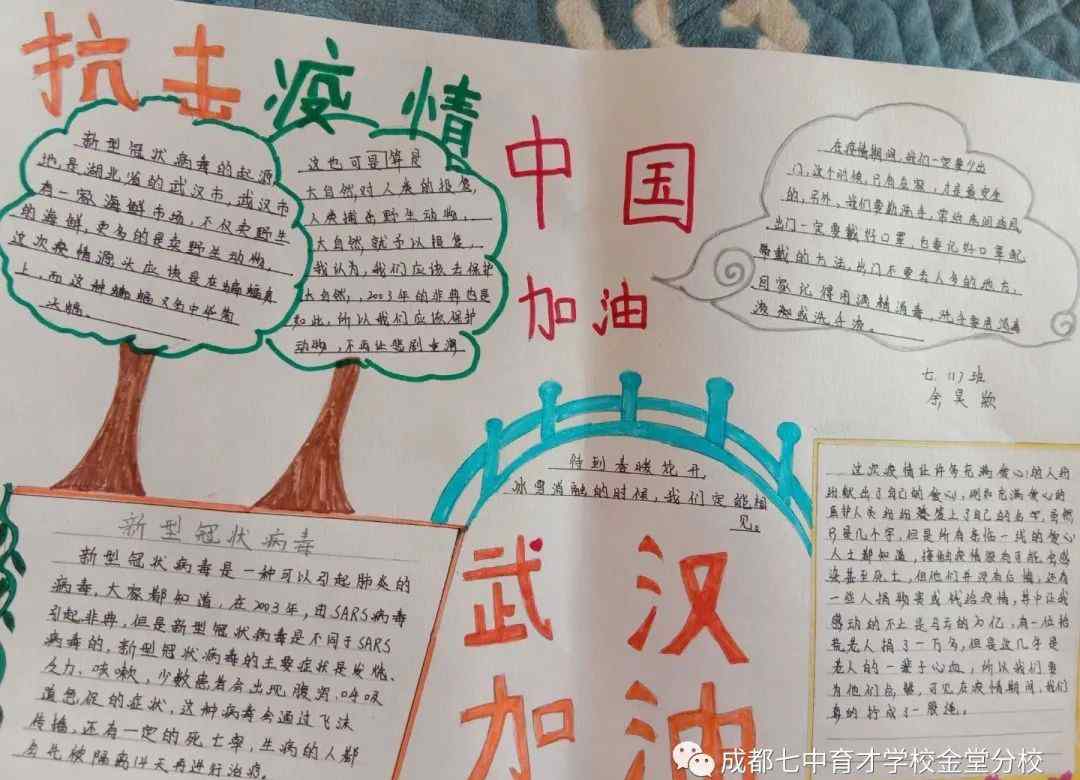 抗击疫情
新型冠状病毒的起源
地是湖北省的武汉市,武汉市
有一家海鲜市场,不仅卖野生
的海鲜,更多的是卖野生动物。
这次疫情源头应该是在蝙蝠身
上,而这种蝙蝠又名中华菊
头蝠。
这也可是算是
大自然对人类的报复,
人类捕杀野生动物,
大自然就予以报复,
我认为,我们应该去保护
大自然,2003年的非典也是
如此,所以我们应该保护
动物,不再让悲剧重演
中国
加油
在疫情期间,我们一定要少出
门,这个时候,只有在家,才是最安全
的,另外,我们要勤洗手,常给房间通风
出门一定要戴好口罩,也要记好口罩配
带戴的方法,出门不要去人多的地方,
回家记得用酒精消毒,洗手要用消毒
液和或洗手液。
七.(1)班
余昊颖
待到春暖花开,
冰雪消融的时候,我们定能相
见。
武汉
加油
新型冠状病毒
新型冠状病毒是一种可以引起肺炎的
病毒,大家都知道,在2003年,由SARS病毒
引起非典,但是新型冠状病毒是不同于SARS
病毒的,新型冠状病毒的主要症状是发烧、
乏力、咳嗽,少数患者会出现腹泻、呼吸
道急促的症状,这种病毒会通过飞沫
传播,还有一定的死亡率,生病的人都
会先被隔离14天再进行治疗。
这次疫情让许多充满爱心的人纷
纷献出了自己的爱心,
医护人员纷纷签上了自己的名字,虽然
只是几个字,但是所有奔临一线的爱心
人士都知道,接触疫情极有可能会感
染甚至死亡,但他们并没有后悔,还有
一些人捐物资或钱给疫情,其中让我
感动的不止是马云的10亿,有一位拾
荒老人捐了一万多,但是这几乎是
老人的一辈子心血,所以我们要
为他们点赞,可见在疫情期间,我们
真的拧成了一股绳。
成都七中育才学校金堂分校